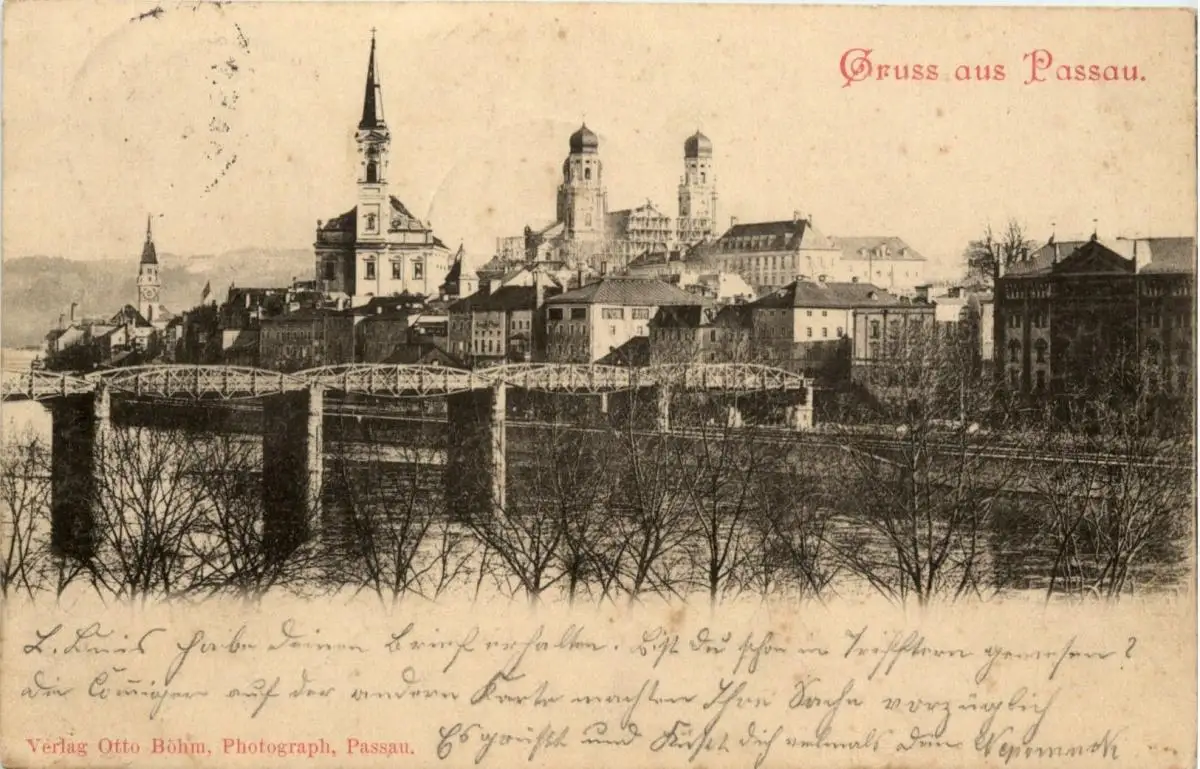 Gruss aus Passau.
L. Luis habe Deinen Brief erhalten. Bist Du schon in gewesen?
Die auf der andern Karte machten Ihre Sache vorzüglich
Verlag Otto Böhm, Photograph, Passau.
Es grüßt und Küßt Dich vielmals Dein Nepomuk